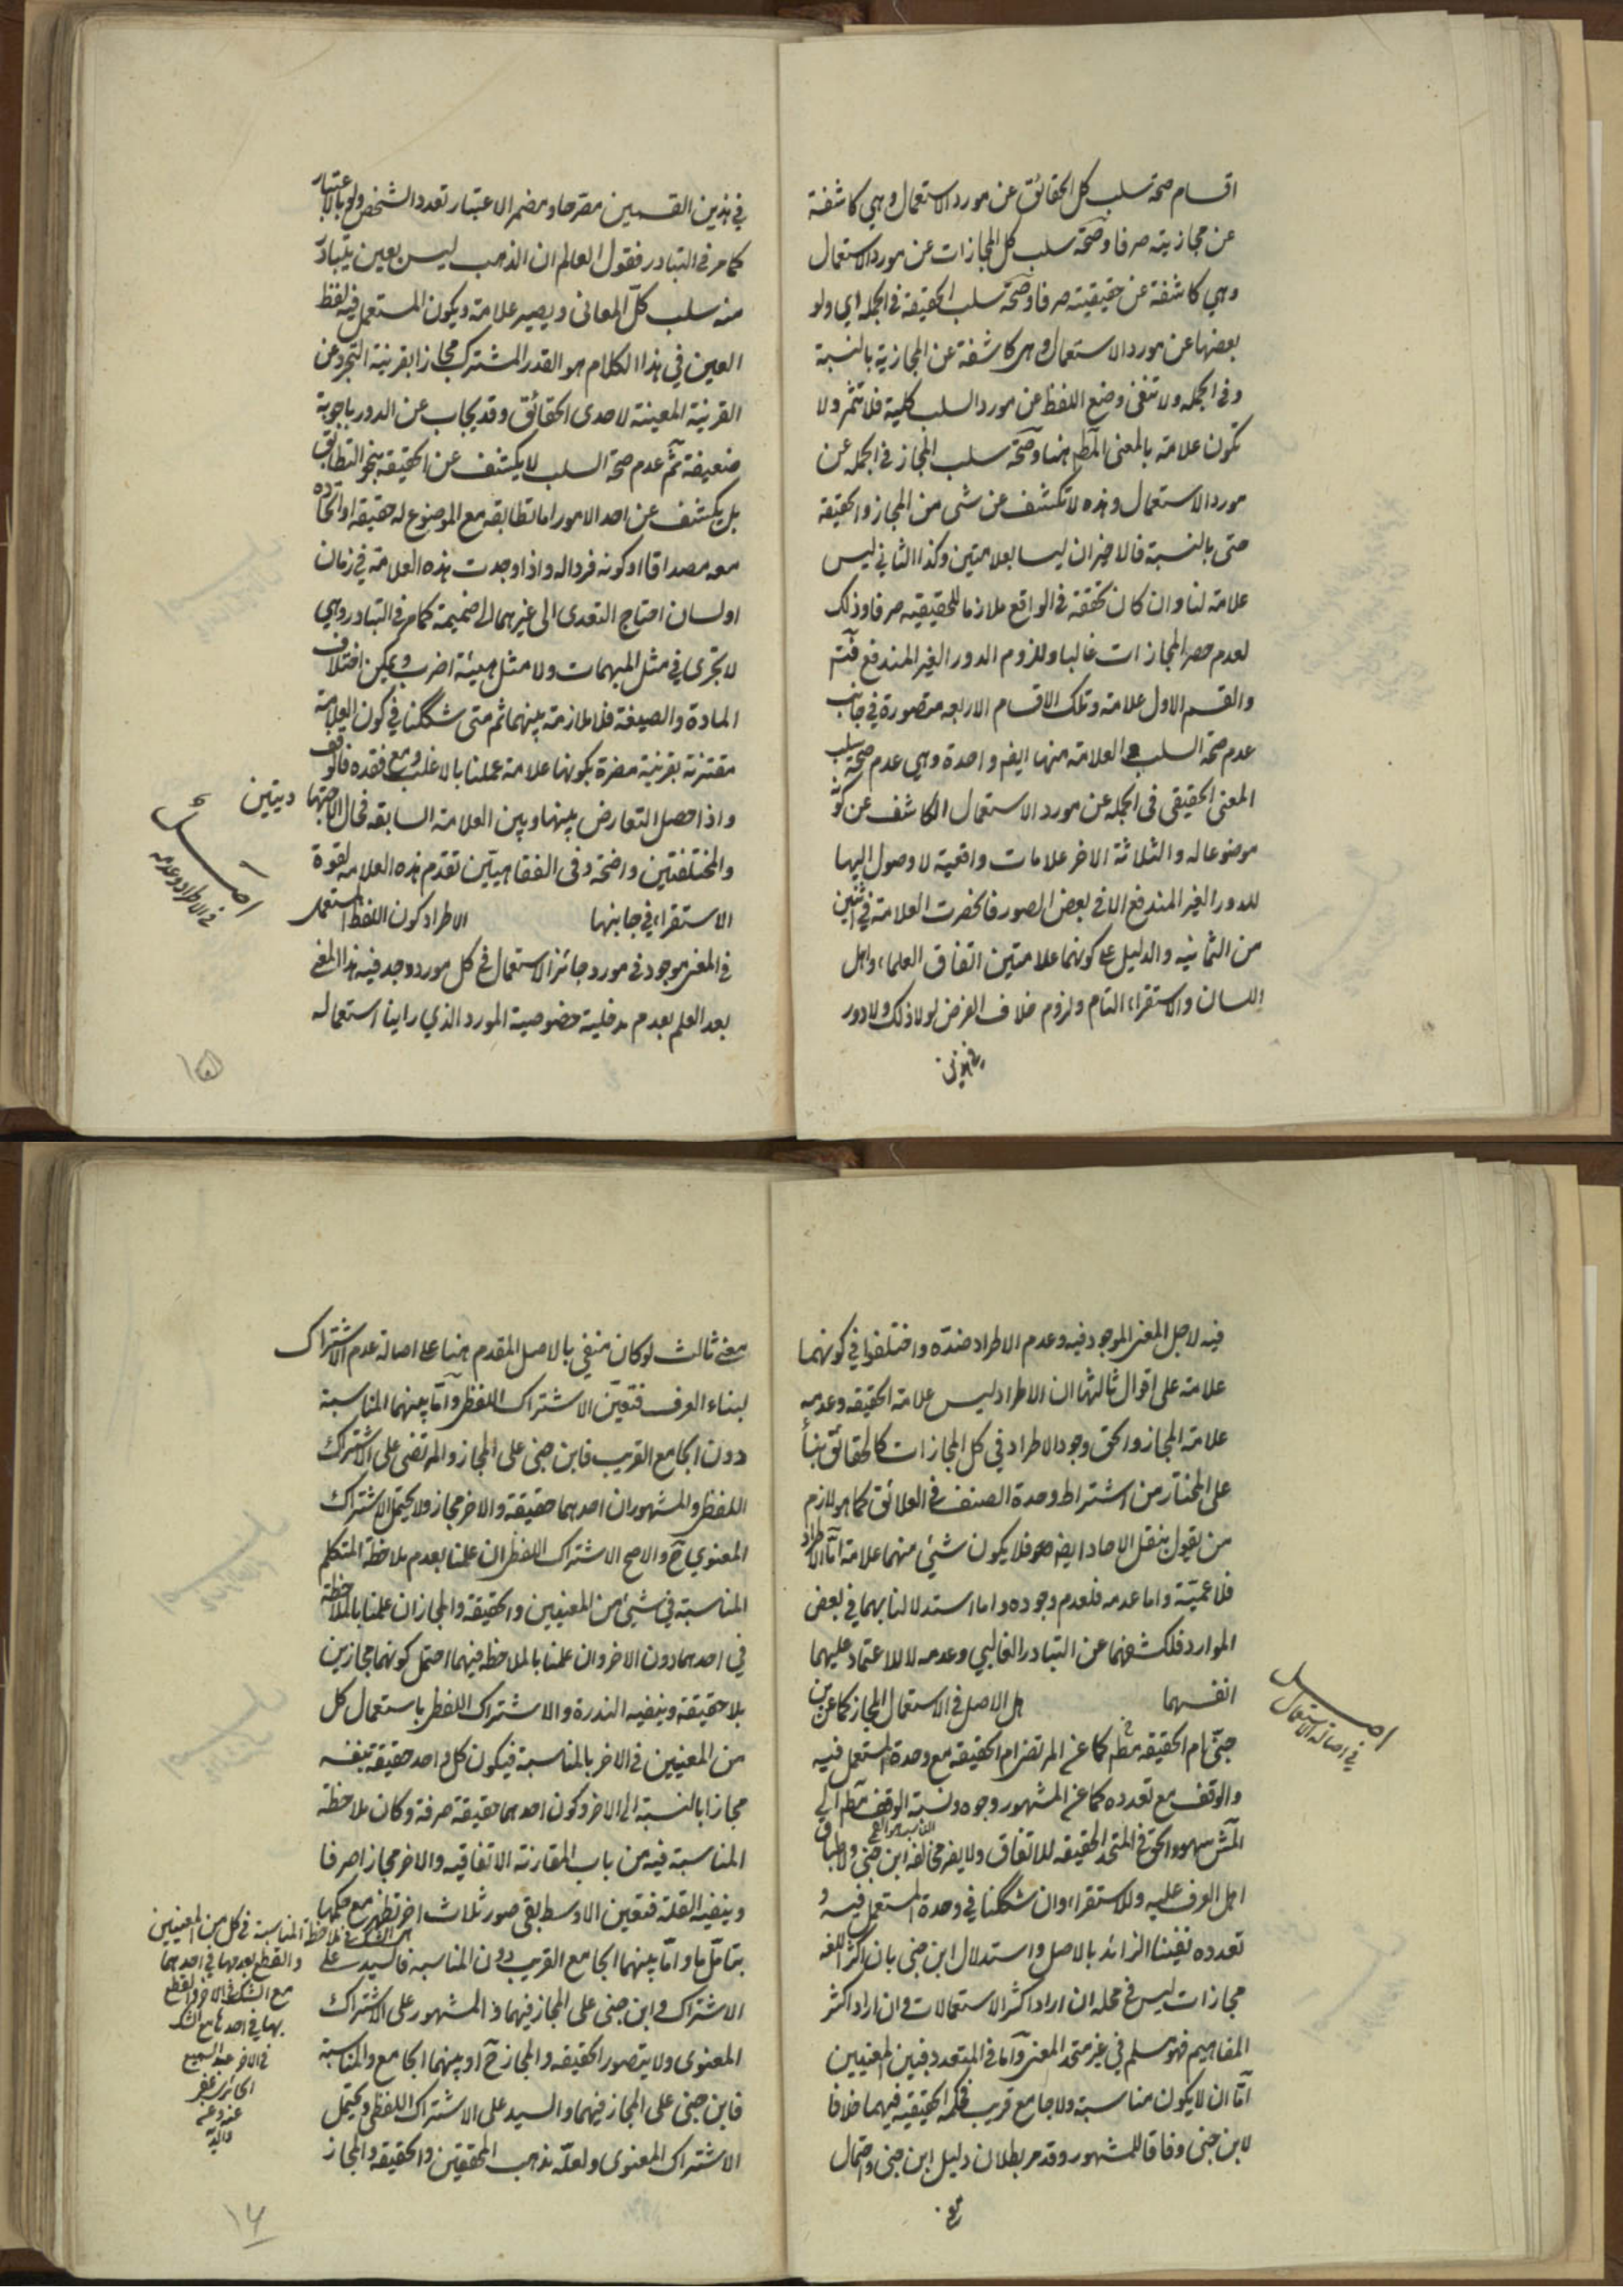 اقسام صحة سلب كل الحقائق عن مورد الاستعمال وهي كاشفة
عن مجازيته صرفا وصحة سلب كل المجازات عن مورد الاستعمال
وهي كاشفة عن حقيقيته صرفا وصحة سلب الحقيقة في الجمله اي ولو
بعضها عن مورد الاستعمال وهى كاشفة عن المجازية بالنسبة
وفى الجمله ولا تنفى وضع اللفظ عن مورد السلب كلية فلا تثمر ولا
تكون علامة بالمعنى المط هنا وصحة سلب المجاز في الجمله عن
مورد الاستعمال وهذه لا تكشف عن شى من المجاز والحقيقة
حتى بالنسبة فالاخيران ليسا بعلامتين وكذا الثاني ليس
علامة لنا وان كان تحققه في الواقع ملازما للحقيقيته صرفا وذلك
لعدم حصر المجازات غالبا وللزوم الدور الغير المندفع فثم
والقسم الاول علامة وتلك الاقسام الاربعه متصورة في جانب
عدم صحة السلب والعلامة منها ايض واحدة وهي عدم صحة سلب
المعنى الحقيقي فى الجمله عن مورد الاستعمال الكاشف عن كونه
موضوعا له والثلاثة الاخر علامات واقعية لا وصول اليها
للدور الغير المندفع الا في بعض الصور فانحصرت العلامة في اثنين
من الثمانيه والدليل على كونهما علامتين اتفاق العلماء واهل
اللسان والاستقراء التام ولزوم خلاف الفرض لولا ذلك ولا دور
في هذين
في هذين القسمين مصرحا ومضمرا لاعتبار تعدد الشخص ولو بالاعتبار
كما مر في التبادر فقول العالم ان الذهب ليس بعين يتبادر
منه سلب كل المعانى ويصير علامة ويكون المستعمل فيه لفظ
العين في هذا الكلام هو القدر المشترك مجازا بقرنية التجرد عن
القرنية المعينة لاحدى الحقائق وقد يجاب عن الدور باجوبة
ضعيفة ثم عدم صحة السلب لا يكشف عن الحقيقه بنحو التطابق
بل يكشف عن احد الامور اما تطابقه مع الموضوع له حقيقه او اتحاده
معه مصداقا او كونه فردا له واذا وجدت هذه العلامة في زمان
او لسان احتاج التعدى الى غيرهما الى ضميمة كما مر في التبادر وهي
لا تجرى في مثل المبهمات ولا مثل هيئة اضرب ويمكن اختلاف
المادة والصيغة فلا ملازمة بينهما ثم متى شككنا في كون العلامة
مقترنة بقرنية مضرة بكونها علامة عملنا بالاغلب ومع فقده فالوقف
واذا حصل التعارض بينها وبين العلامة السابقه فحال الاجتهاديتين
والمختلفتين واضحة وفى الفقاهيتين تقدم هذه العلامه لقوة
الاستقراء في جانبها الاطراد كون اللفظ المستعمل
في المعنى موجود فى مورد جائز الاستعمال في كل مورد وجد فيه هذا المعنى
بعد العلم بعدم مدخلية خصوصية المورد الذي راينا استعماله
اصل
في الاطراد وعدمه
١٥
فيه لاجل المعنى الموجود فيه وعدم الاطراد ضده واختلفوا في كونهما
علامة على اقوال ثالثها ان الاطراد ليس علامة الحقيقه وعدمه
علامة المجاز والحق وجود الاطراد في كل المجازات كالحقائق بناء
على المختار من اشتراط وحدة الصنف في العلائق كما هو لازم
من يقول بنقل الاحاد ايض فلا يكون شيئ منهما علامة اما الاطراد
فلاعميته واما عدمه فلعدم وجوده واما استدلالنا بهما في بعض
الموارد فلكشفهما عن التبادر الغالبي وعدمه لا للاعتماد عليهما
انفسهما هل الاصل في الاستعمال المجاز كما عن ابن
جني ام الحقيقه مط كما عن المرتضى ام الحقيقه مع وحدة المستعمل فيه
والوقف مع تعدده كما عن المشهور وجوه ونسبة الوقف مط الى
المش سهو والحق في المتحد الحقيقه للاتفاق ولا يضر مخالفة ابن جني ولاطباق
اهل العرف عليه وللاستقراء وان شككنا في وحدة المستعمل فيه و
تعدده نفينا الزائد بالاصل واستدلال ابن جنى بان اكثر اللغه
مجازات ليس في محله ان اراد اكثر الاستعمالات وان اراد اكثر
المفاهيم فهو مسلم في غير متحد المعنى واما في المتعدد فبين المعنيين
اما ان لا يكون مناسبة ولا جامع قريب فحكمه الحقيقيه فيهما خلافا
لابن جنى وفاقا للمشهور وقد مر بطلان دليل ابن جنى واحتمال
اصل
في اصالة الاستعمال
معنى ثالث لو كان منفي بالاصل المقدم هنا على اصالة عدم الاشتراك
لبناء العرف فتعين الاشتراك اللفظى واما بينهما المناسبة
دون الجامع القريب فابن جنى على المجاز والمرتضى على الاشتراك
اللفظى والمشهور ان احدهما حقيقة والاخر مجاز ولا يحتمل الاشتراك
المعنوي ح والاصح الاشتراك اللفظى ان علمنا بعدم ملاحظة المتكلم
المناسبة في شيئ من المعنيين والحقيقة والمجاز ان علمنا بالملاحظة
في احدهما دون الاخر وان علمنا بالملاحظه فيهما احتمل كونهما مجازين
بلا حقيقة وينفيه الندرة والاشتراك اللفظى باستعمال كل
من المعنيين في الاخر بالمناسبة فيكون كل واحد حقيقة بنفسه
مجازا بالنسبة الى الاخر وكون احدهما حقيقة صرفة وكان ملاحظة
المناسبة فيه من باب المقارنة الاتفاقيه والاخر مجازا صرفا
وينفيه القلة فتعين الاوسط بقى صور ثلاث اخر تظهر مع حكمها
بتامل ما واما بينهما الجامع القريب دون المناسبه فالسيد على
الاشتراك وابن جنى على المجاز فيهما والمشهور على الاشتراك
المعنوى ولا يتصور الحقيقه والمجاز ح او بينهما الجامع والمناسبة
فابن جنى على المجاز فيهما والسيد على الاشتراك اللفظى ويحتمل
الاشتراك المعنوى ولعله مذهب المحققين والحقيقه والمجاز
ملاحظة المناسبة في كل من المعنيين
والقطع بعدمها في احدهما
مع الشك في الاخر والقطع
بها في احدهما مع الشك
في الاخر
١٦